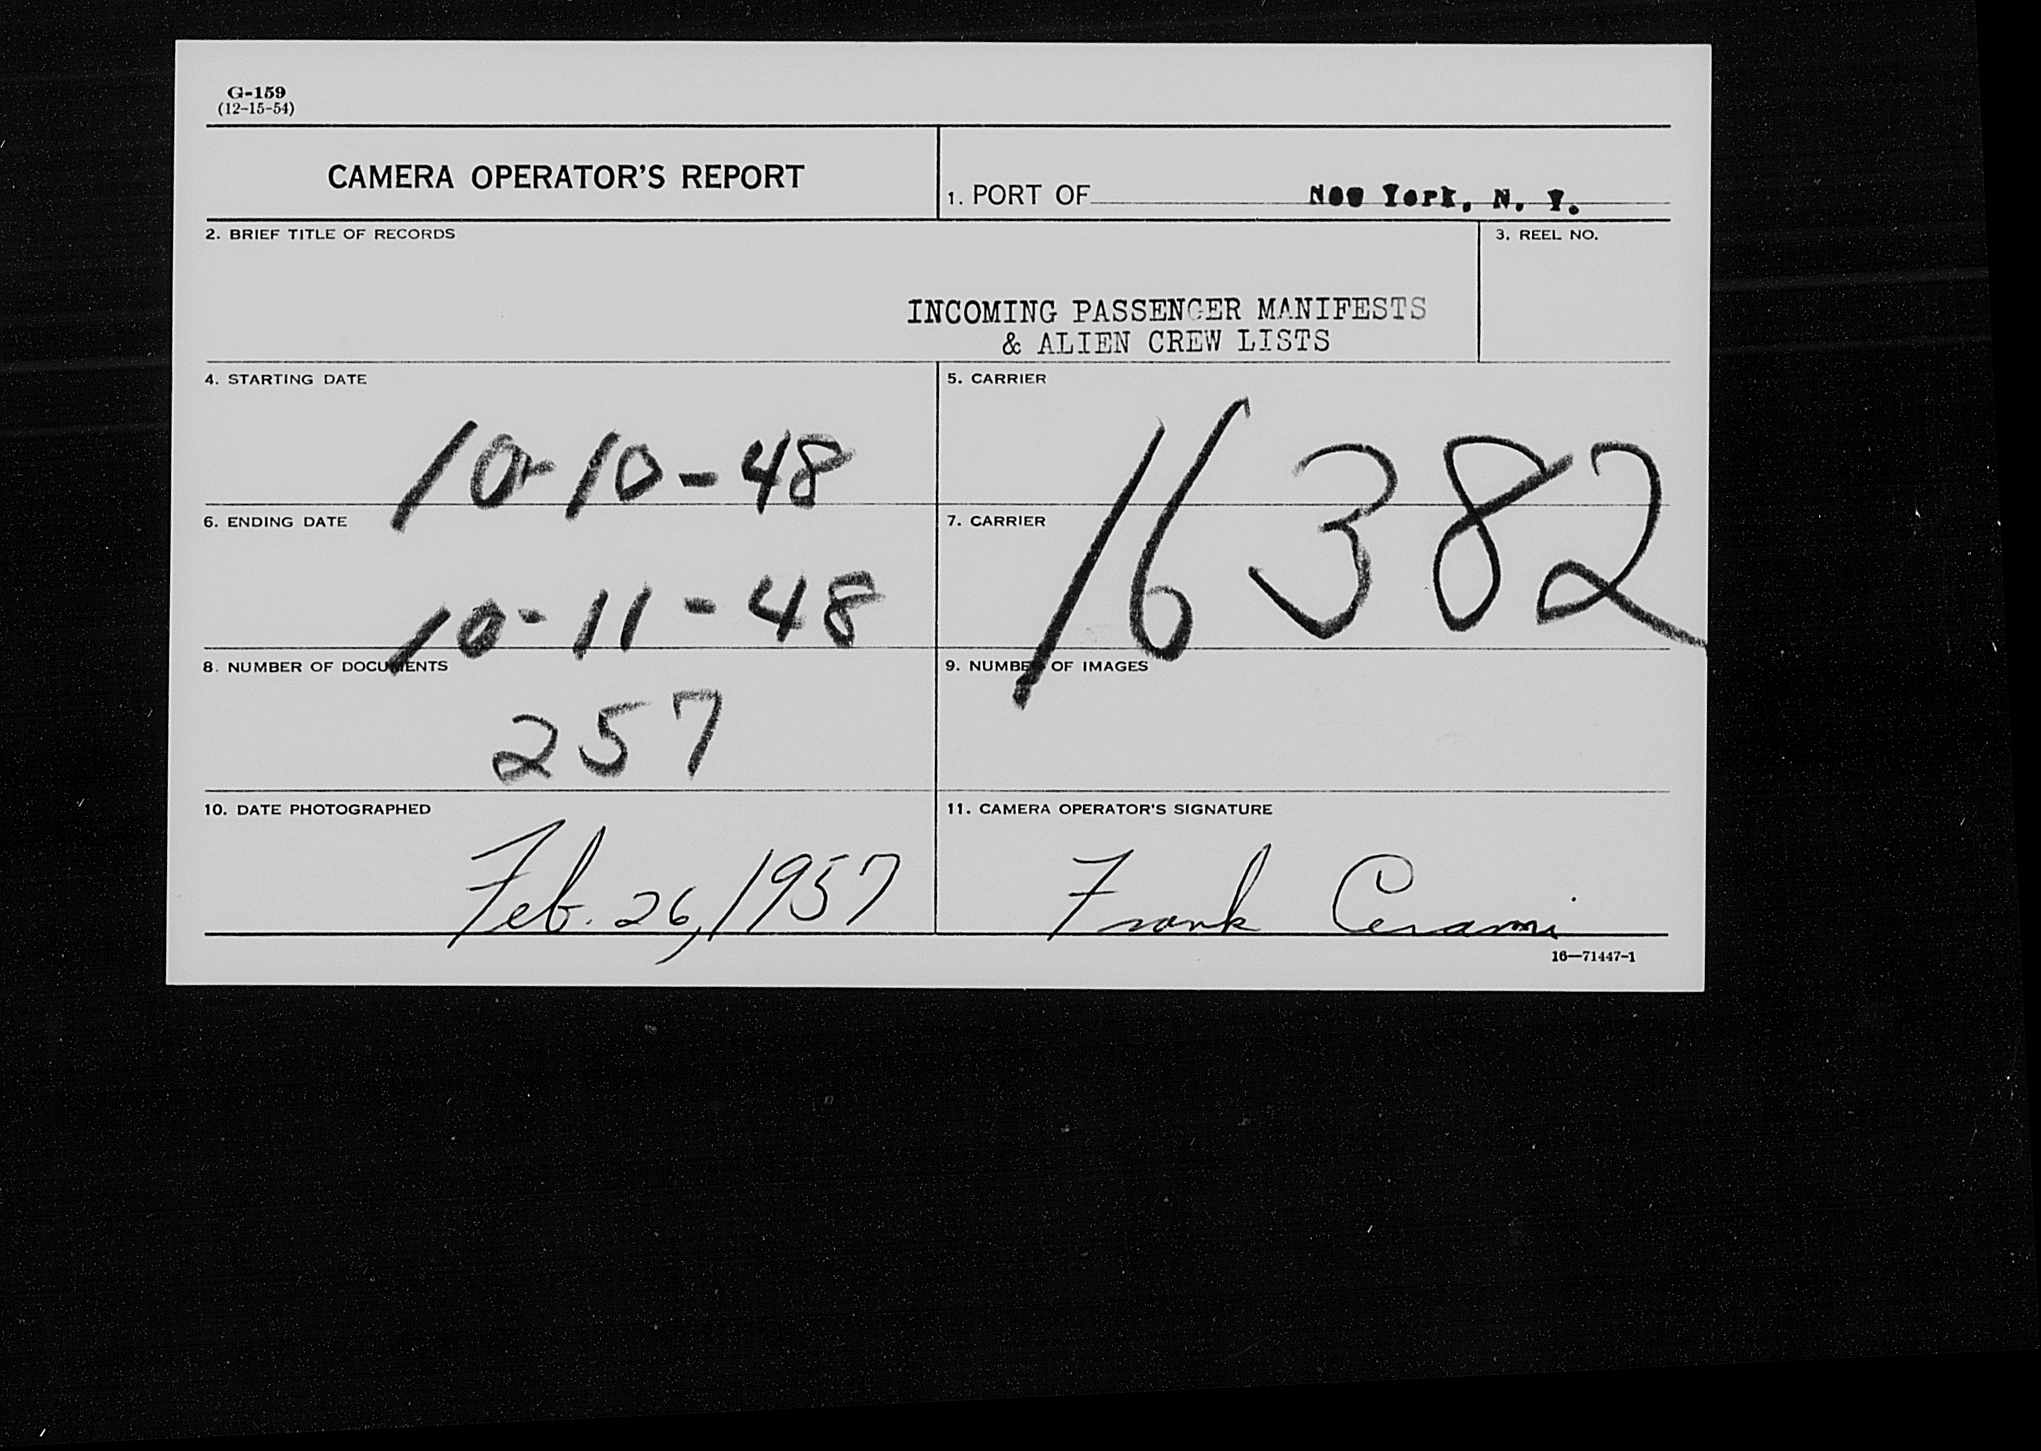 G-159
(12-15-54)
CAMERA OPERATOR'S REPORT
1. PORT OF New York, N. Y.
2. BRIEF TITLE OF RECORDS
3. REEL NO.
INCOMING PASSENGER MANIFESTS
& ALIEN CREW LISTS
4. STARTING DATE
10-10-48
5. CARRIER
16382
6. ENDING DATE
10-11-48
7. CARRIER
8. NUMBER OF DOCUMENTS
257
9. NUMBER OF IMAGES
10. DATE PHOTOGRAPHED
Feb. 26, 1957
11. CAMERA OPERATOR'S SIGNATURE
Frank Cerami
16—71447-1